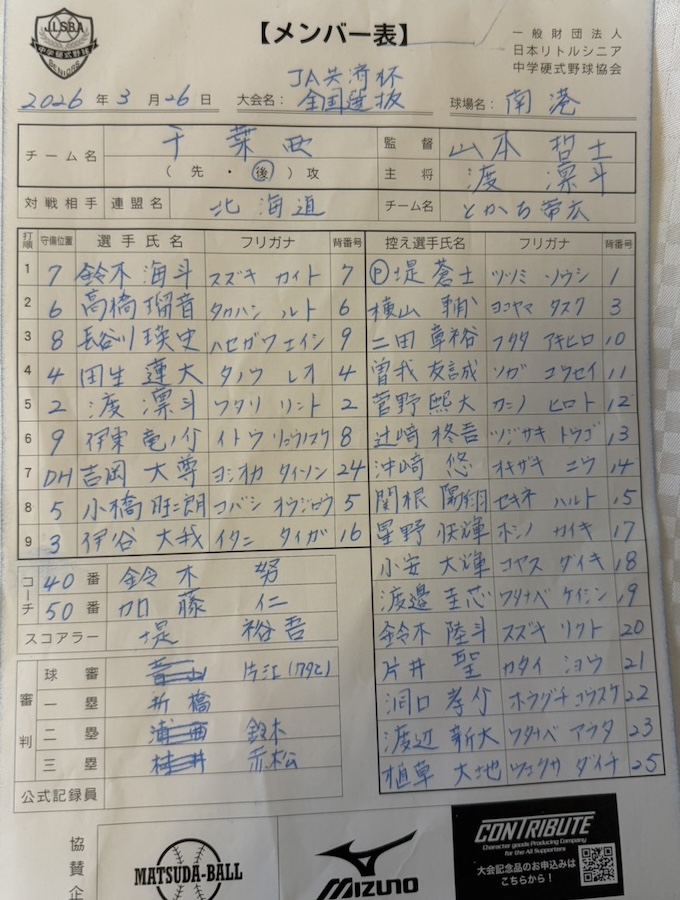 J.L.S.B.A
中学硬式野球
SENIORS
【メンバー表】
一般財団法人
日本リトルシニア
中学硬式野球協会
2026年3月26日 大会名: JA共済杯 全国選抜 球場名: 南港
チーム名 千葉西 (先・後)攻
監督 山本 哲士
主将 渡 凛斗
対戦相手 連盟名 北海道 チーム名 とかち帯広
打順 守備位置 選手氏名 フリガナ 背番号
1 7 鈴木 海斗 スズキ カイト 7
2 6 高橋 瑠音 タカハシ ルト 6
3 8 長谷川 瑛史 ハセガワ エイシ 9
4 4 田生 蓮大 タノウ レオ 4
5 2 渡 凛斗 ワタリ リント 2
6 9 伊東 竜ノ介 イトウ リュウノスケ 8
7 DH 吉岡 大尊 ヨシオカ タイソン 24
8 5 小橋 旺二朗 コバシ オウジロウ 5
9 3 伊谷 大我 イタニ タイガ 16
控え選手氏名 フリガナ 背番号
P 堤 蒼士 ツツミ ソウシ 1
横山 輔 ヨコヤマ タスク 3
二田 章裕 フタタ アキヒロ 10
曽我 友誠 ソガ ユウセイ 11
菅野 熙大 カンノ ヒロト 12
辻崎 柊吾 ツジサキ トウゴ 13
沖崎 悠 オキザキ ユウ 14
関根 陽翔 セキネ ハルト 15
星野 快輝 ホシノ カイキ 17
小安 大輝 コヤス ダイキ 18
渡邊 圭芯 ワタナベ ケイシン 19
鈴木 陸斗 スズキ リクト 20
片井 聖 カタイ ショウ 21
洞口 孝介 ホラグチ コウスケ 22
渡辺 新大 ワタナベ アラタ 23
植草 大地 ウエクサ ダイチ 25
コーチ 40番 鈴木 努
50番 加藤 仁
スコアラー 堤 裕吾
審判
球審 青山 片江(カタヒ)
一塁 折橋
二塁 浦西 鈴木
三塁 桂井 赤松
公式記録員
協賛企
MATSUDA-BALL
MIZUNO
CONTRIBUTE
Character goods Producing Company
for the All Supporters
大会記念品のお申込みは
こちらから!